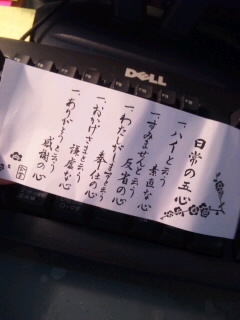 DELL
日常の五心
一、ハイと云う
素直な心
一、すみませんと云う
反省の心
一、わたしがしますと云う
奉仕の心
一、おかげさまと云う
謙虚な心
一、ありがとうと云う
感謝の心